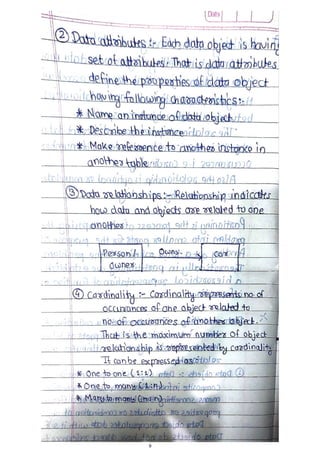 Date
② Data attributes :- Each data object is having
set of attributes. That is data attributes
define the properties of data object
having following characteristics :-
* Name an instance of data object
* Describe the instance
* Make reference to another instance in
another table
③ Data relationships :- Relationship indicates
how data and objects are related to one
another
Person / owner owns car
④ Cardinality :- Cardinality represents no of
occurances of one object related to
no. of occurances of another object.
That is the maximum number of object
relationship is represented by cardinality
It can be expressed as
* One to one (1:1)
* One to many (1:n)
* Many to many (m:n)